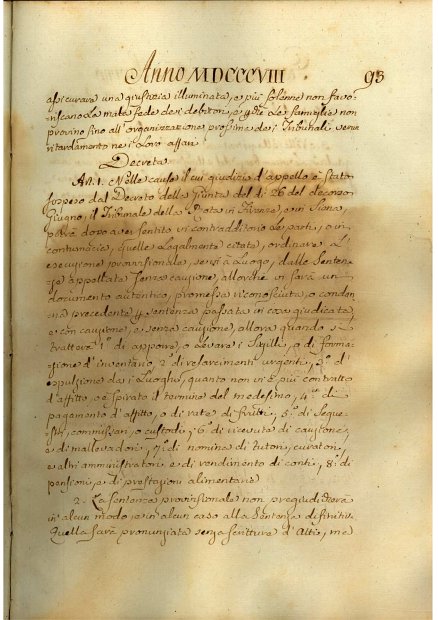 Anno MDCCCVIII 93
assicurare una giustizia illuminata, e più solenne non favo-
riscano la mala fede dei debitori, e che le famiglie non
provino sino all'organizzazione prossima dei Tribunali verun
ritardamento ne i loro affari
Decreta
Art. 1. Nelle cause il cui giudizio d'appello è stato
sospeso dal Decreto della Giunta del dì 26 del decorso
Giugno, il Tribunale della Rota in Firenze, o in Siena,
potrà dopo aver sentito in contradittorio le parti, o in
contumacia, quelle legalmente citate, ordinare l'
esecuzione provvisionale, se vi à luogo, dalle Senten-
ze appellate senza cauzione, allorchè vi sarà un
documento autentico, promessa riconosciuta, o condan-
na precedente sentenza passata in cosa giudicata,
e con cauzione, e senza cauzione, allora quando si
tratterà 1.° di apporre, o levare i Sigilli, o di forma-
zione d'inventario, 2.° di risarcimenti urgenti, 3.° d'
espulsione da i luoghi, quanto non vi è più contratto
d'affitto, o è spirato il termine del medesimo, 4.° di
pagamento d'affitto, o di rate di frutti, 5.° di Seque-
stri, commissari, o custodi, 6.° di ricevuta di cauzione,
e di mallevadori, 7.° di nomina di tutori, curatori,
e altri amministratori, e di rendimento di conti, 8.° di
pensioni, e di prestazioni alimentarie
2. La sentenza provvisionale non pregiudicherà
in alcun modo, e in alcun caso alla Sentenza difinitiva
Quella sarà pronunziata senza scritture d'Atti, me